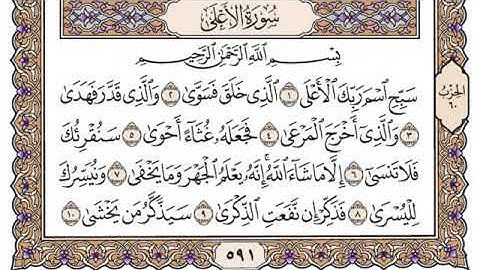 سُورَةُ الأَعْلَى
بِسْمِ اللَّهِ الرَّحْمَٰنِ الرَّحِيمِ
سَبِّحِ اسْمَ رَبِّكَ الْأَعْلَى ١ الَّذِي خَلَقَ فَسَوَّىٰ ٢ وَالَّذِي قَدَّرَ فَهَدَىٰ
٣ وَالَّذِي أَخْرَجَ الْمَرْعَىٰ ٤ فَجَعَلَهُ غُثَاءً أَحْوَىٰ ٥ سَنُقْرِئُكَ
فَلَا تَنسَىٰ ٦ إِلَّا مَا شَاءَ اللَّهُ إِنَّهُ يَعْلَمُ الْجَهْرَ وَمَا يَخْفَىٰ ٧ وَنُيَسِّرُكَ
لِلْيُسْرَىٰ ٨ فَذَكِّرْ إِن نَّفَعَتِ الذِّكْرَىٰ ٩ سَيَذَّكَّرُ مَن يَخْشَىٰ ١٠
الحِزْبُ
٦٠
٥٩١